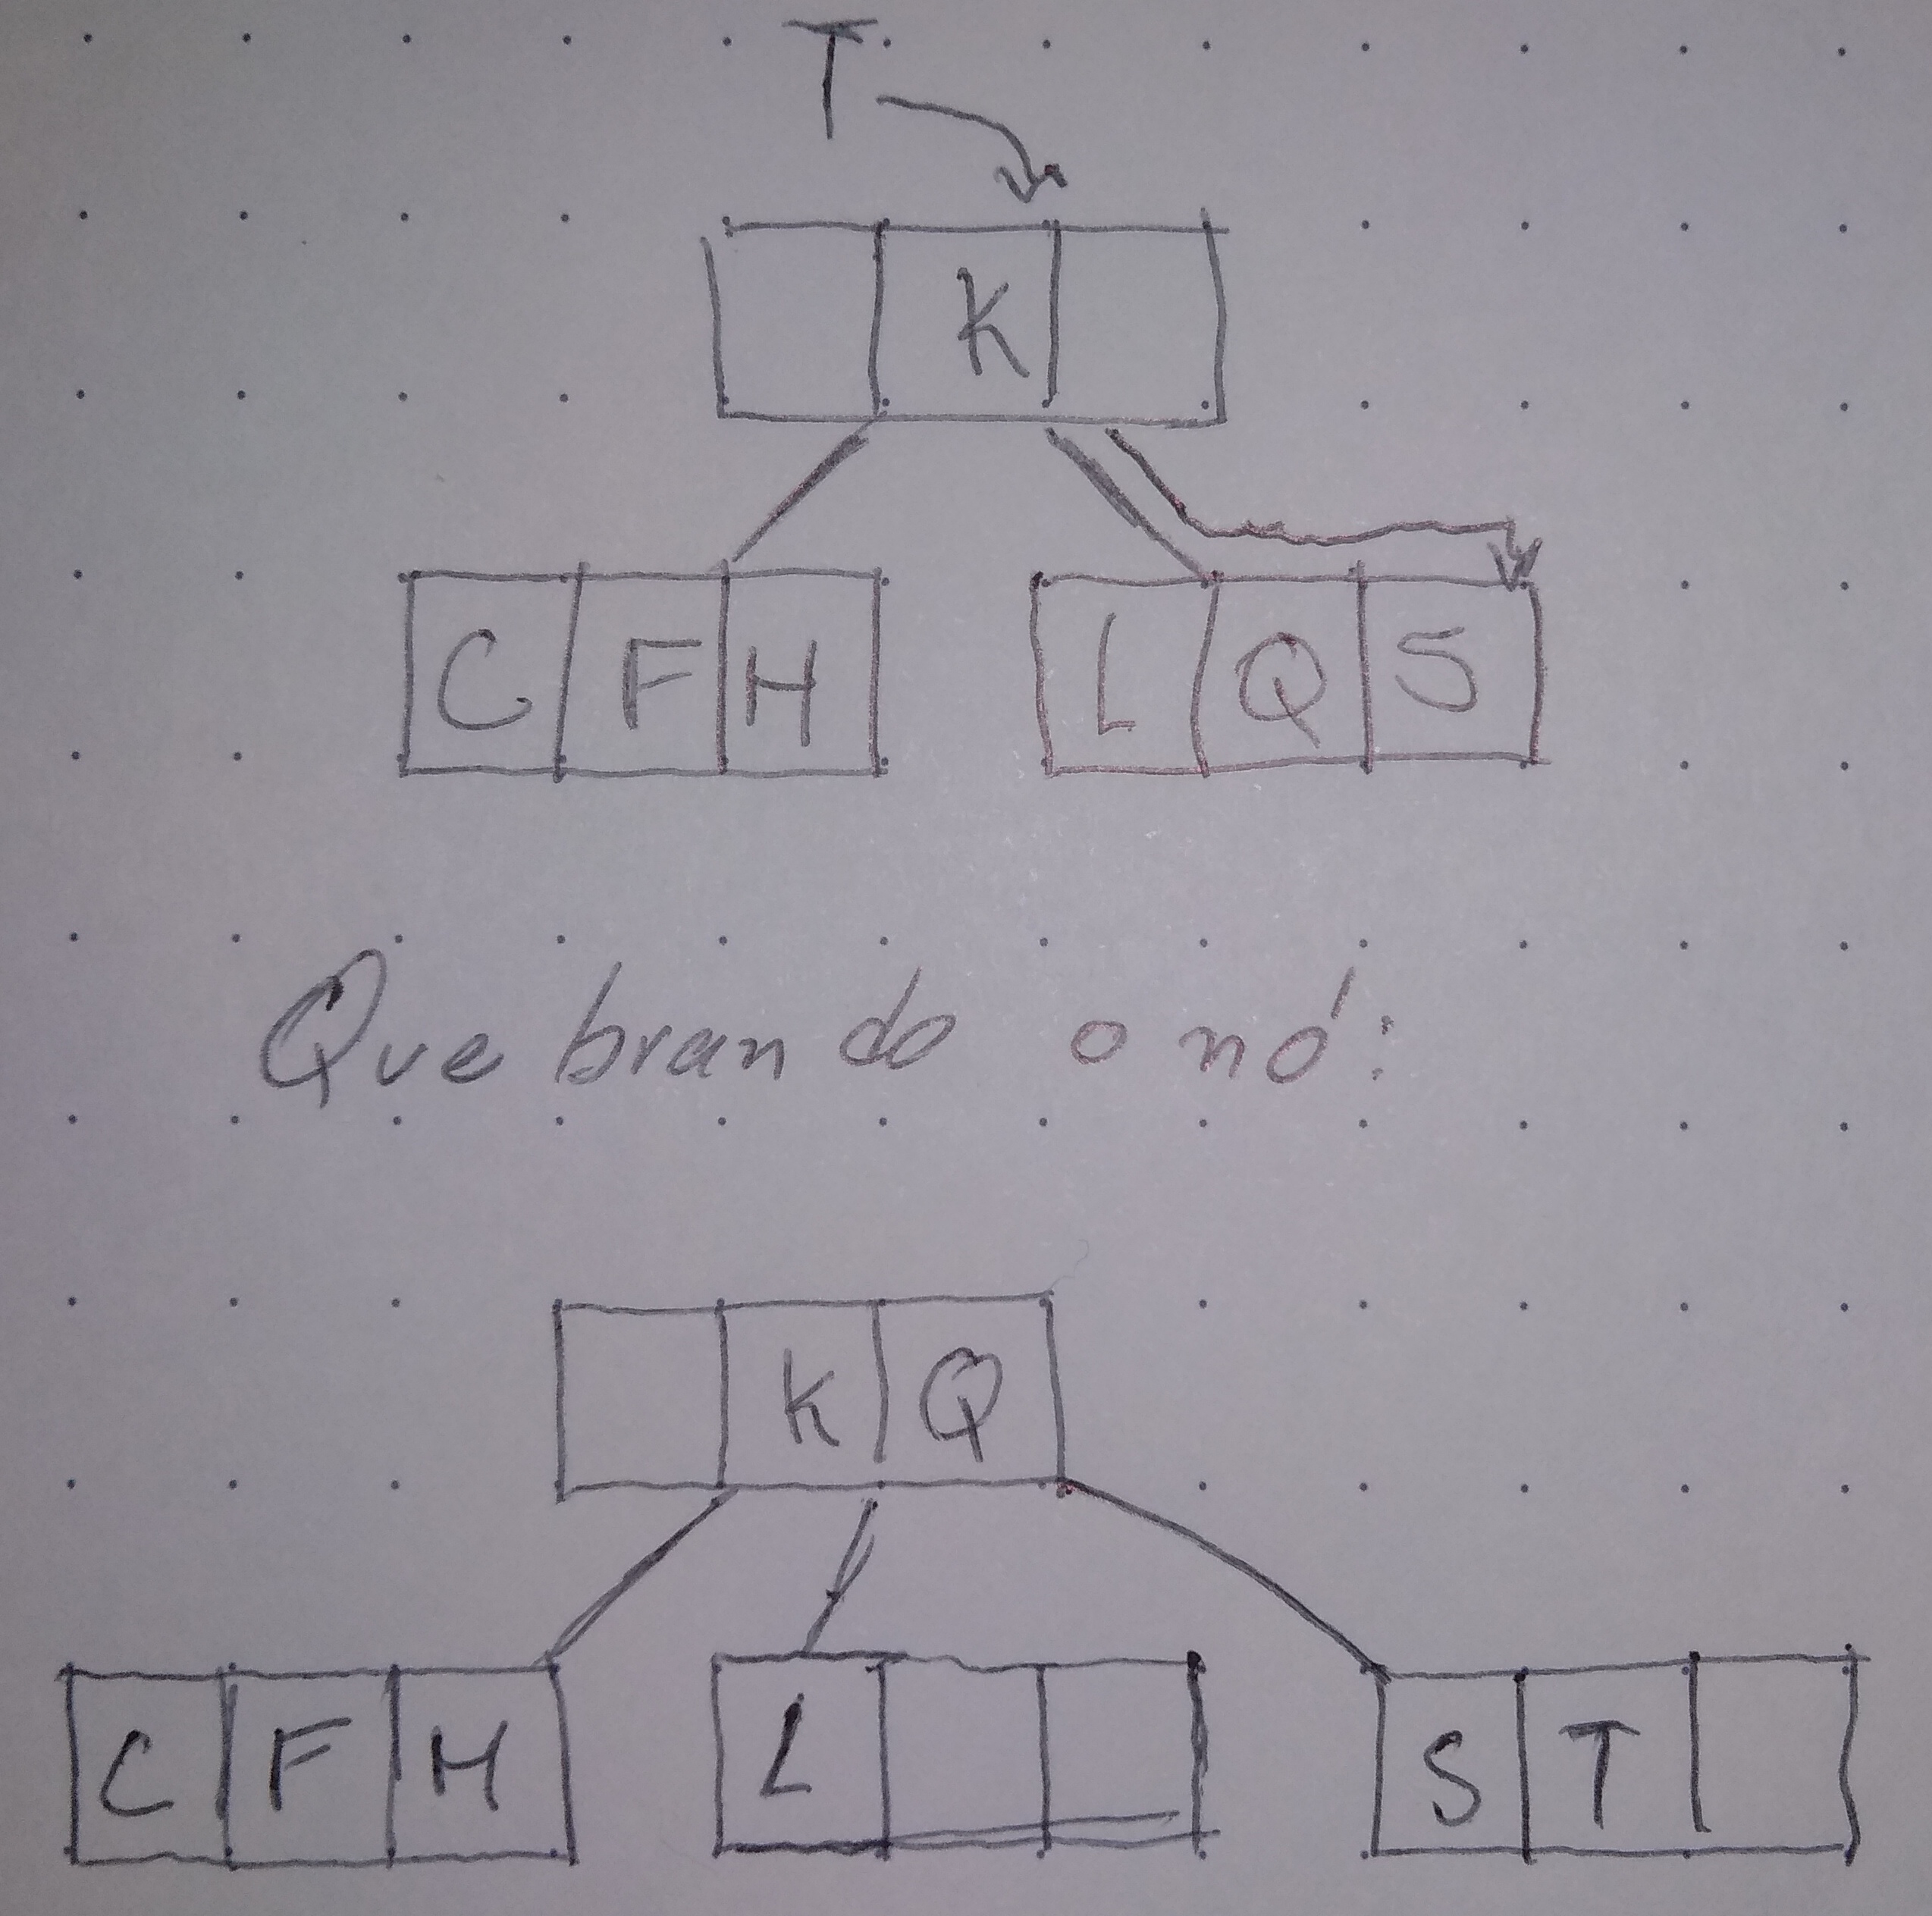 T
K
C F H L Q S
Quebrando o nó:
K Q
C F H L S T